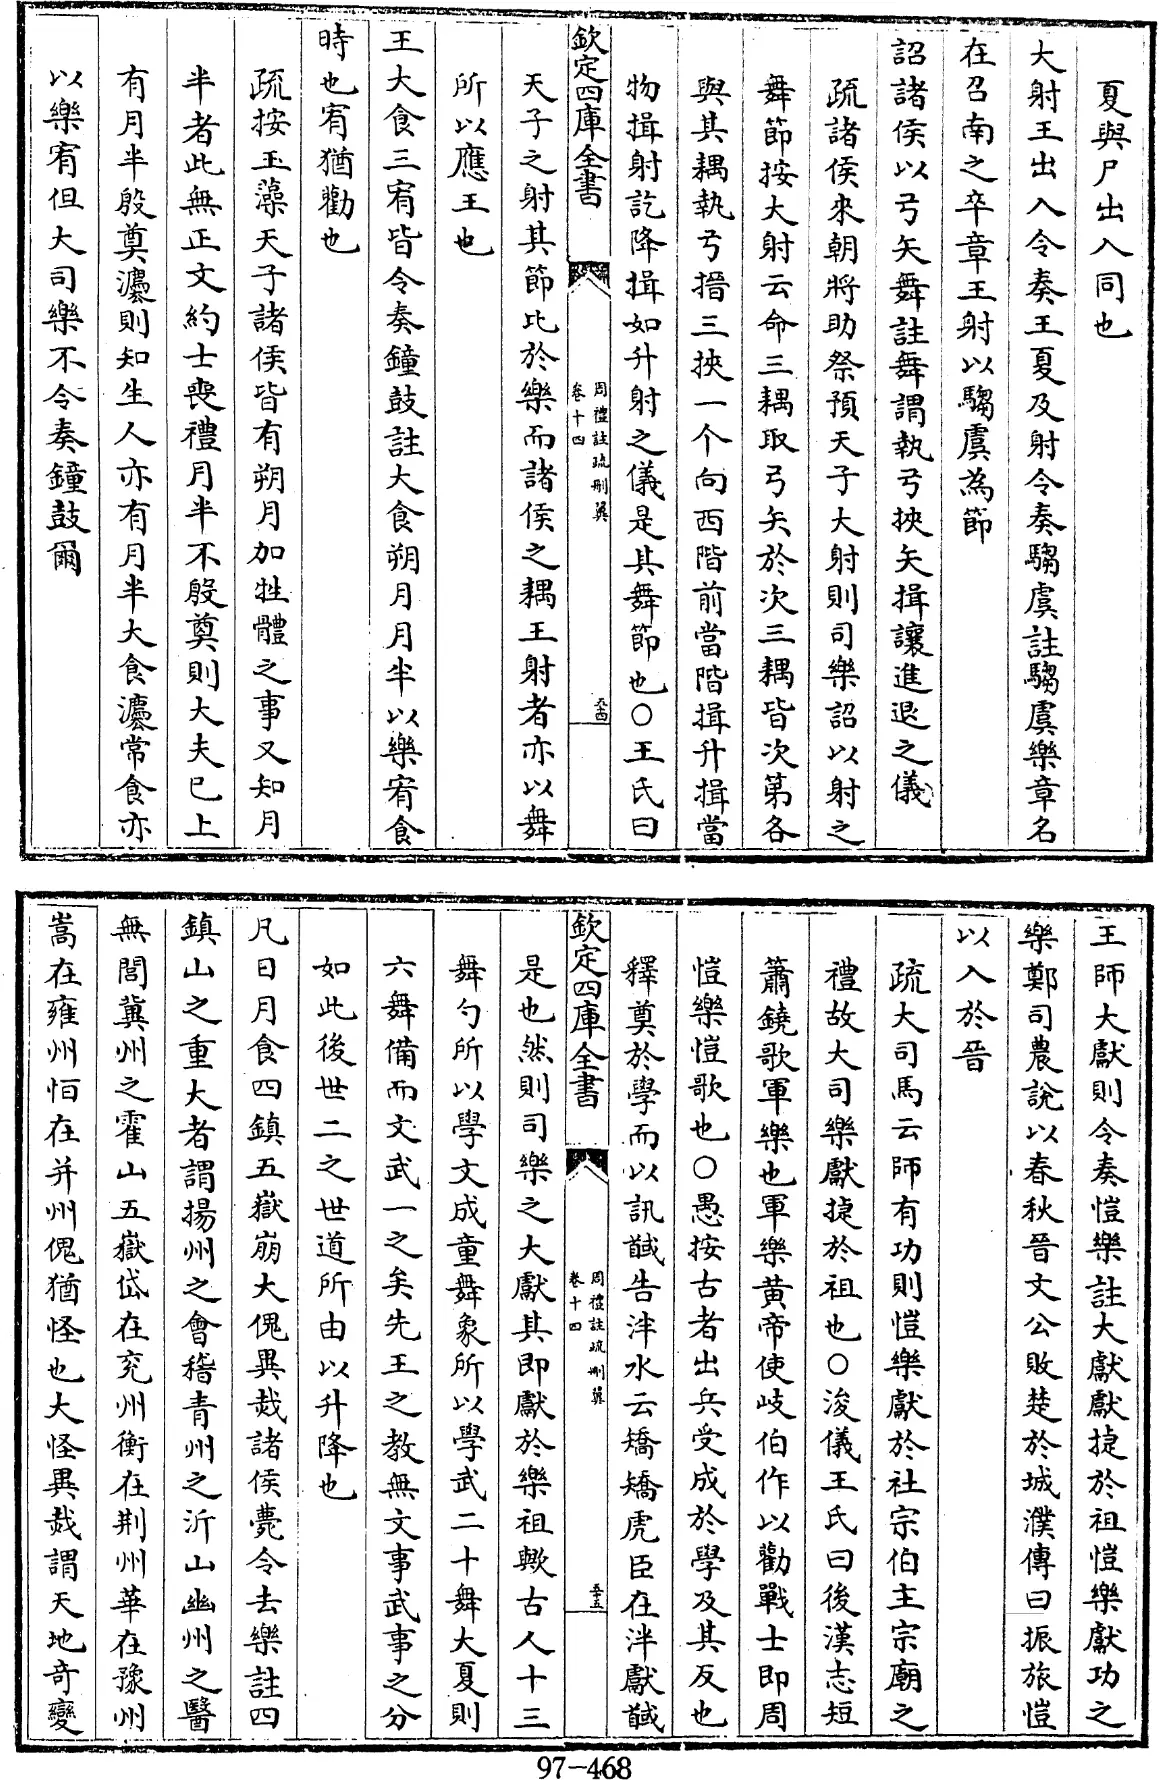 夏與尸出入同也
大射王出入令奏王夏及射令奏騶虞註騶虞樂章名
在召南之卒章王射以騶虞為節
詔諸侯以弓矢舞註舞謂執弓挾矢揖讓進退之儀
疏諸侯來朝將助祭預天子大射則司樂詔以射之
舞節按大射云命三耦取弓矢於次三耦皆次第各
與其耦執弓搢三挾一个向西階前當階揖升揖當
物揖射訖降揖如升射之儀是其舞節也○王氏曰
欽定四庫全書
周禮註疏刪翼
卷十四
五十四
天子之射其節比於樂而諸侯之耦王射者亦以舞
所以應王也
王大食三宥皆令奏鐘鼓註大食朔月月半以樂宥食
時也宥猶勸也
疏按玉藻天子諸侯皆有朔月加牲體之事又知月
半者此無正文約士喪禮月半不殷奠則大夫已上
有月半殷奠灋則知生人亦有月半大食灋常食亦
以樂宥但大司樂不令奏鐘鼓爾
王師大獻則令奏愷樂註大獻獻捷於祖愷樂獻功之
樂鄭司農說以春秋晉文公敗楚於城濮傳曰振旅愷
以入於晉
疏大司馬云師有功則愷樂獻於社宗伯主宗廟之
禮故大司樂獻捷於祖也○浚儀王氏曰後漢志短
簫鐃歌軍樂也軍樂黃帝使岐伯作以勸戰士即周
愷樂愷歌也○愚按古者出兵受成於學及其反也
釋奠於學而以訊馘告泮水云矯矯虎臣在泮獻馘
欽定四庫全書
周禮註疏刪翼
卷十四
五十五
是也然則司樂之大獻其即獻於樂祖歟古人十三
舞勺所以學文成童舞象所以學武二十舞大夏則
六舞備而文武一之矣先王之教無文事武事之分
如此後世二之世道所由以升降也
凡日月食四鎮五嶽崩大傀異烖諸侯薨令去樂註四
鎮山之重大者謂揚州之會稽青州之沂山幽州之醫
無閭冀州之霍山五嶽岱在兗州衡在荆州華在豫州
嵩在雍州恒在并州傀猶怪也大怪異烖謂天地奇變
97-468